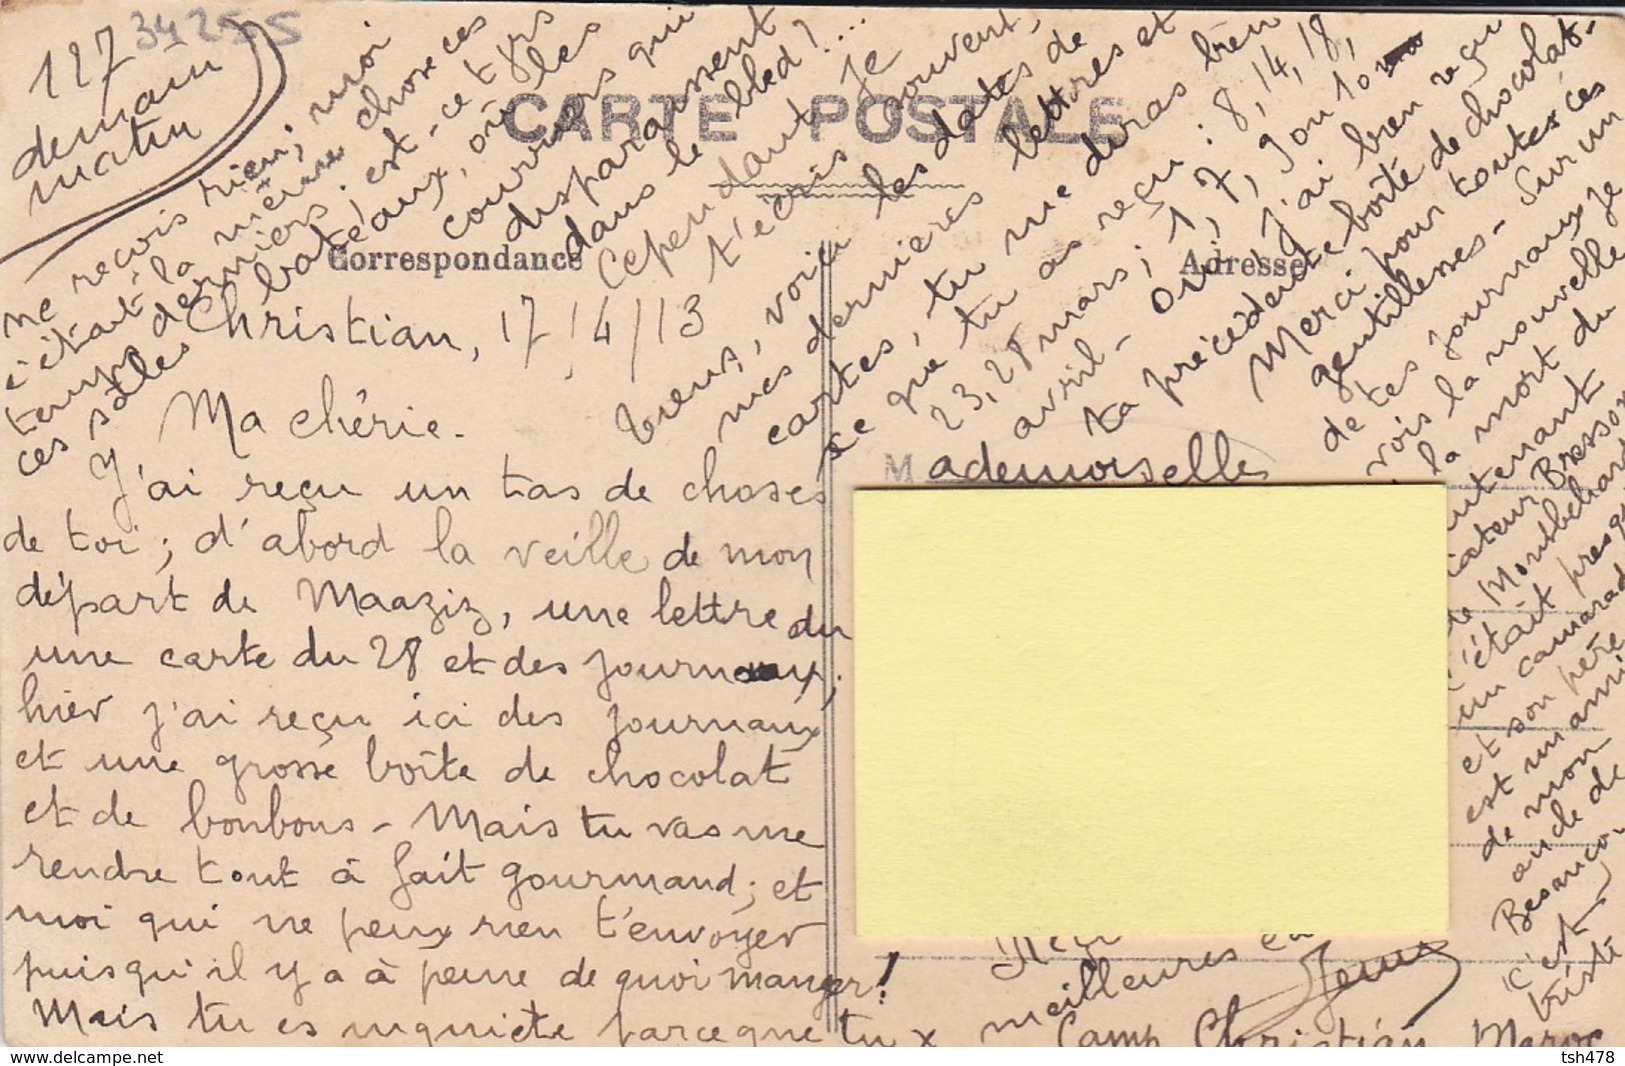 127
demain
matin
34255
CARTE POSTALE
Correspondance
Adresse
Christian, 17/4/13
Ma chérie.
J'ai reçu un tas de choses
de toi ; d'abord la veille de mon
départ de Maaziz, une lettre du
une carte du 28 et des journaux ;
hier j'ai reçu ici des journaux
et une grosse boîte de chocolat
et de bonbons - Mais tu vas me
rendre tout à fait gourmand ; et
moi qui ne peux rien t'envoyer
puisqu'il y a à peine de quoi manger !
Mais tu es inquiète parce que tu
ne reçois rien, moi
c'était la même chose ces
temps derniers ; est-ce
ces sales bateaux, où les
courriers qui
disparaissent
dans le bled ? ...
Cependant je
t'écris souvent,
tiens, voici les dates de
mes dernières lettres et
cartes, tu me diras bien
ce que tu as reçu : 8, 14, 18,
23, 28 mars ; 1, 7, 9 ou 10
avril - Oui j'ai bien reçu
ta précédente boîte de chocolat -
Merci pour toutes ces
gentillesses - Sur un
de tes journaux je
vois la nouvelle
la mort du
Bresson
de Montbéliard
c'était presque
un camarade
et son père
est un ami
de mon
oncle de
Besançon
c'est
triste
Mademoiselle
meilleures
Camp Christian, Maroc
www.delcampe.net
tsh478